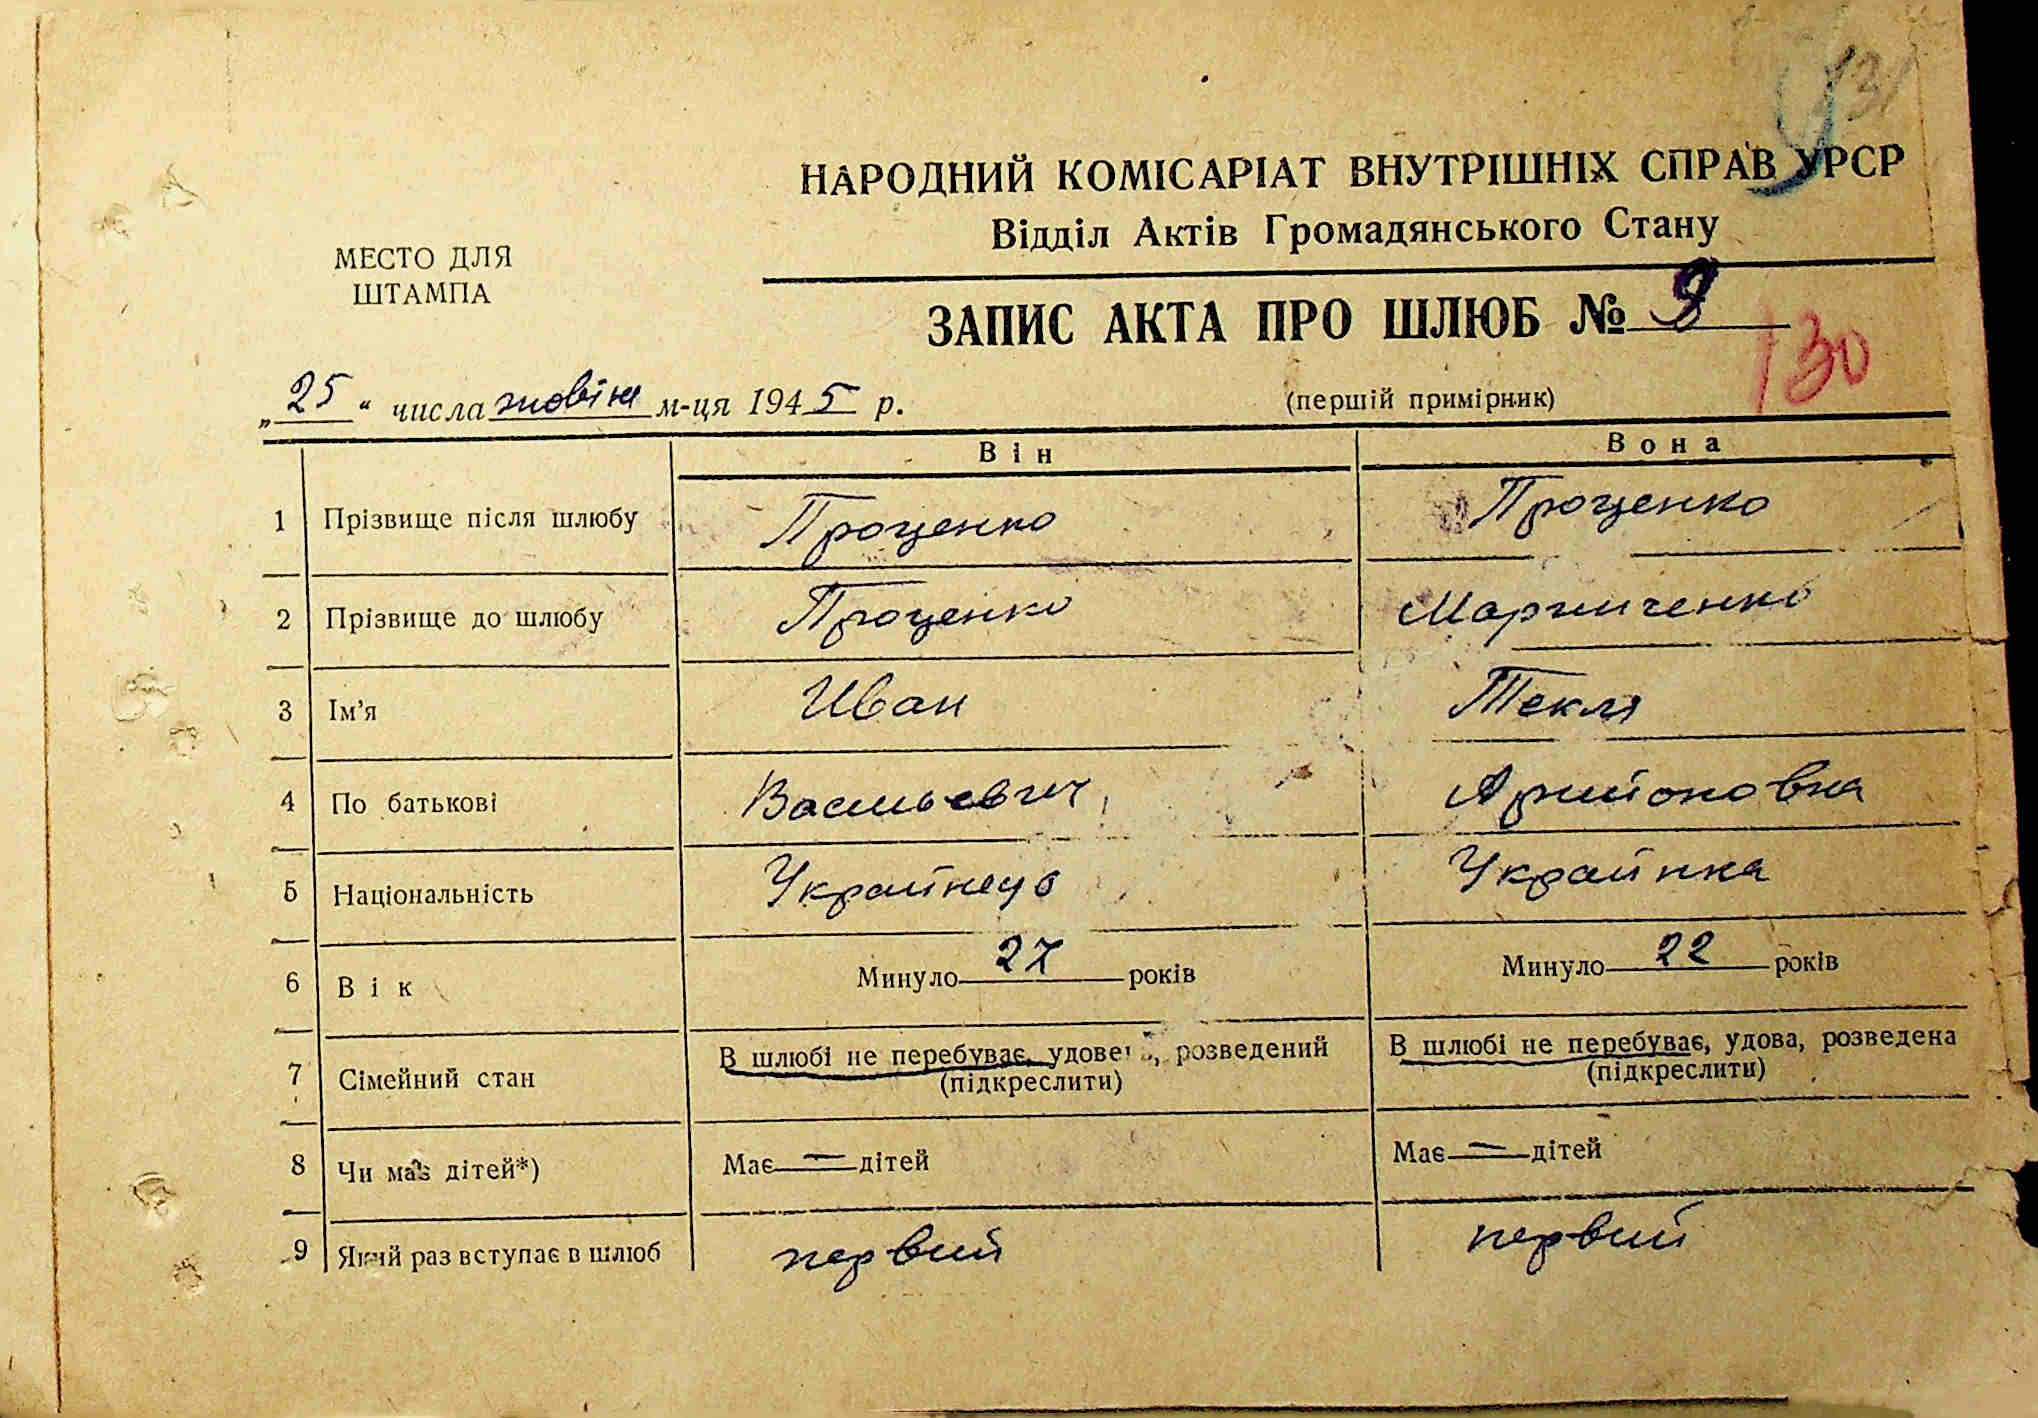 131
НАРОДНИЙ КОМІСАРІАТ ВНУТРІШНІХ СПРАВ УРСР
Відділ Актів Громадянського Стану
МЕСТО ДЛЯ
ШТАМПА
ЗАПИС АКТА ПРО ШЛЮБ № 9
130
„25“ числа жовтня м-ця 1945 р.
(першій примірник)
Він Вона
1 Прізвище після шлюбу Проценко Проценко
2 Прізвище до шлюбу Проценко
3 Ім'я Иван Текля
4 По батькові Васильевич
5 Національність Украйнець Украйнка
6 Вік Минуло 27 років Минуло 22 років
7 Сімейний стан В шлюбі не перебуває, удовець, розведений В шлюбі не перебуває, удова, розведена
(підкреслити) (підкреслити)
8 Чи має дітей*) Має — дітей Має — дітей
9 Який раз вступає в шлюб первий первий